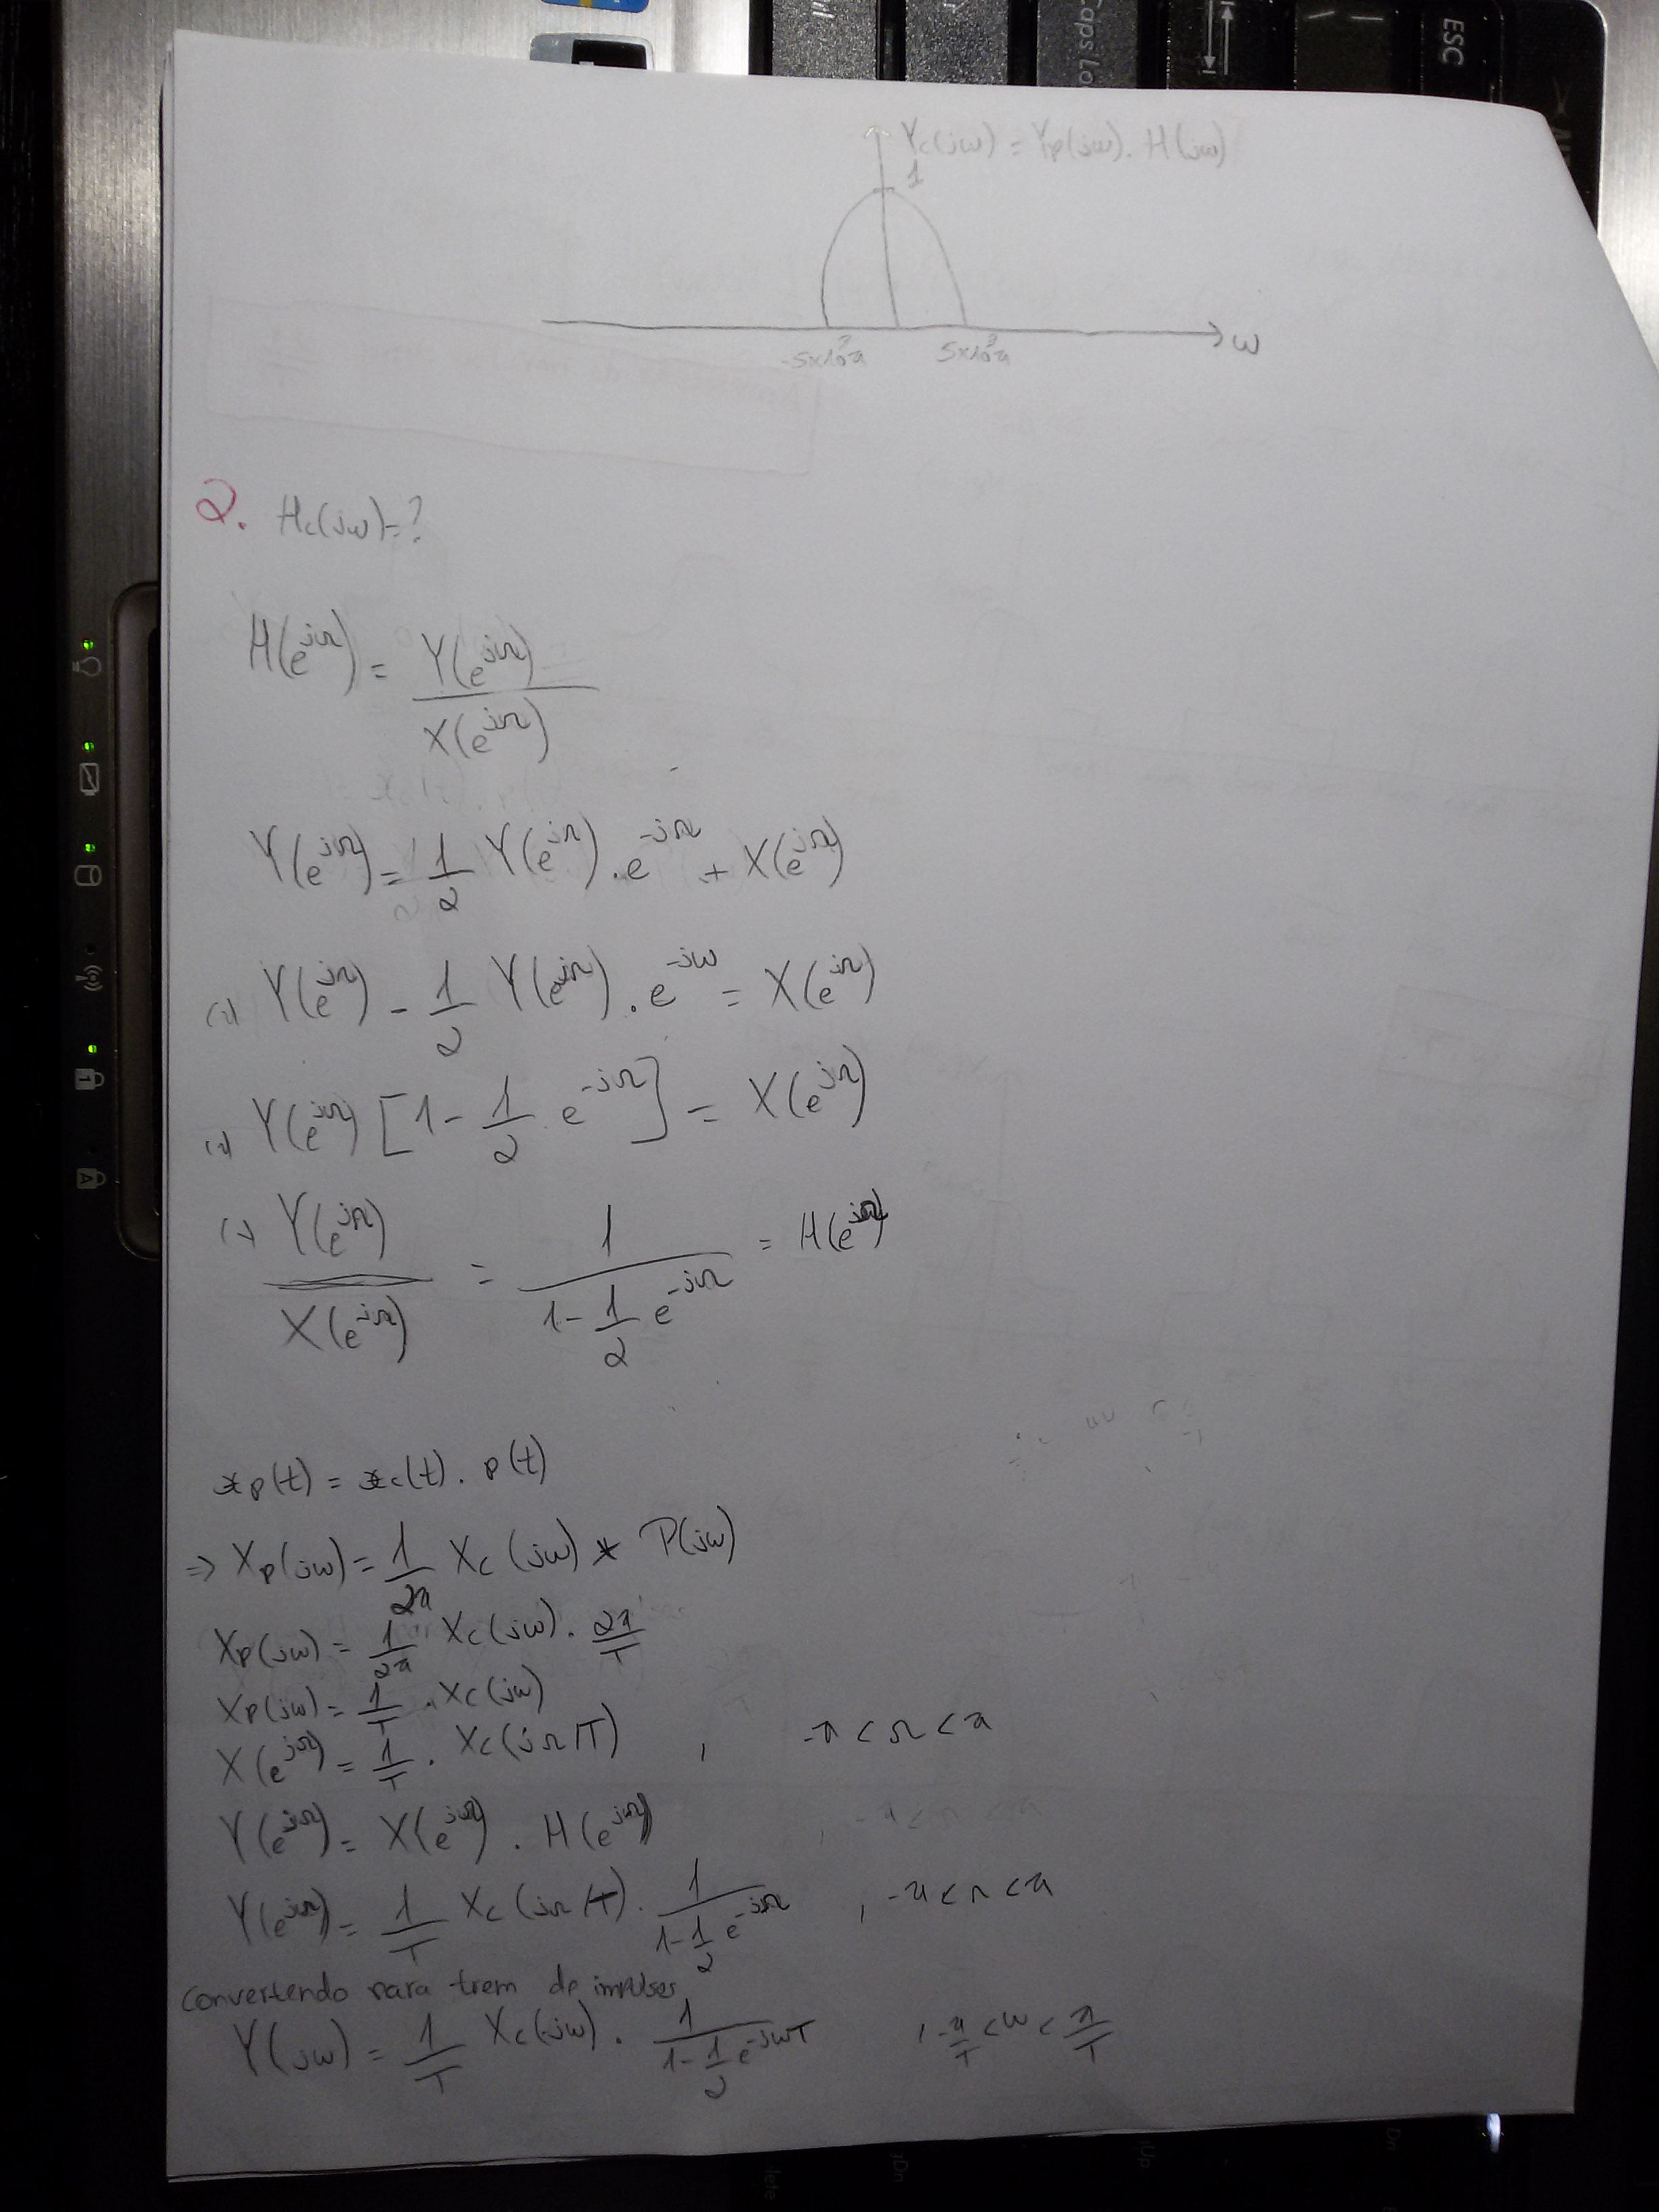 Caps Lo
ESC
Yc(jω) = Yp(jω). H(jω)
1
-5x10³π 5x10³π ω
2. Hc(jω)=?
H(e^jΩ) = Y(e^jΩ) / X(e^jΩ)
Y(e^jΩ) = 1/2 Y(e^jΩ) . e^-jΩ + X(e^jΩ)
(=) Y(e^jΩ) - 1/2 Y(e^jΩ) . e^-jω = X(e^jΩ)
(=) Y(e^jΩ) [1 - 1/2 e^-jΩ] = X(e^jΩ)
(=) Y(e^jΩ) / X(e^jΩ) = 1 / (1 - 1/2 e^-jΩ) = H(e^jΩ)
xp(t) = xc(t) . p(t)
=> Xp(jω) = 1/2π Xc(jω) * P(jω)
Xp(jω) = 1/2π Xc(jω) . 2π/T
Xp(jω) = 1/T . Xc(jω)
X(e^jΩ) = 1/T . Xc(jΩ/T) , -π < Ω < π
Y(e^jΩ) = X(e^jΩ) . H(e^jΩ)
Y(e^jΩ) = 1/T Xc(jΩ/T) . 1 / (1 - 1/2 e^-jΩ) , -π < Ω < π
Convertendo para trem de impulsos,
Y(jω) = 1/T Xc(jω) . 1 / (1 - 1/2 e^-jωT) , -π/T < ω < π/T